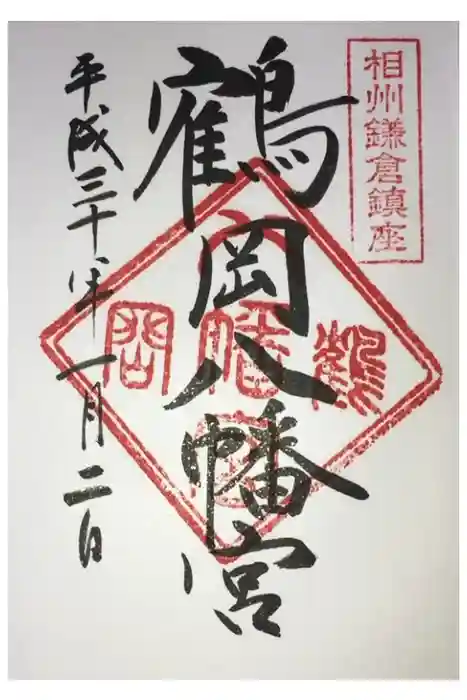 相州鎌倉鎮座
鶴岡八幡宮
平成三十年一月二日
鶴
八幡宮
岡